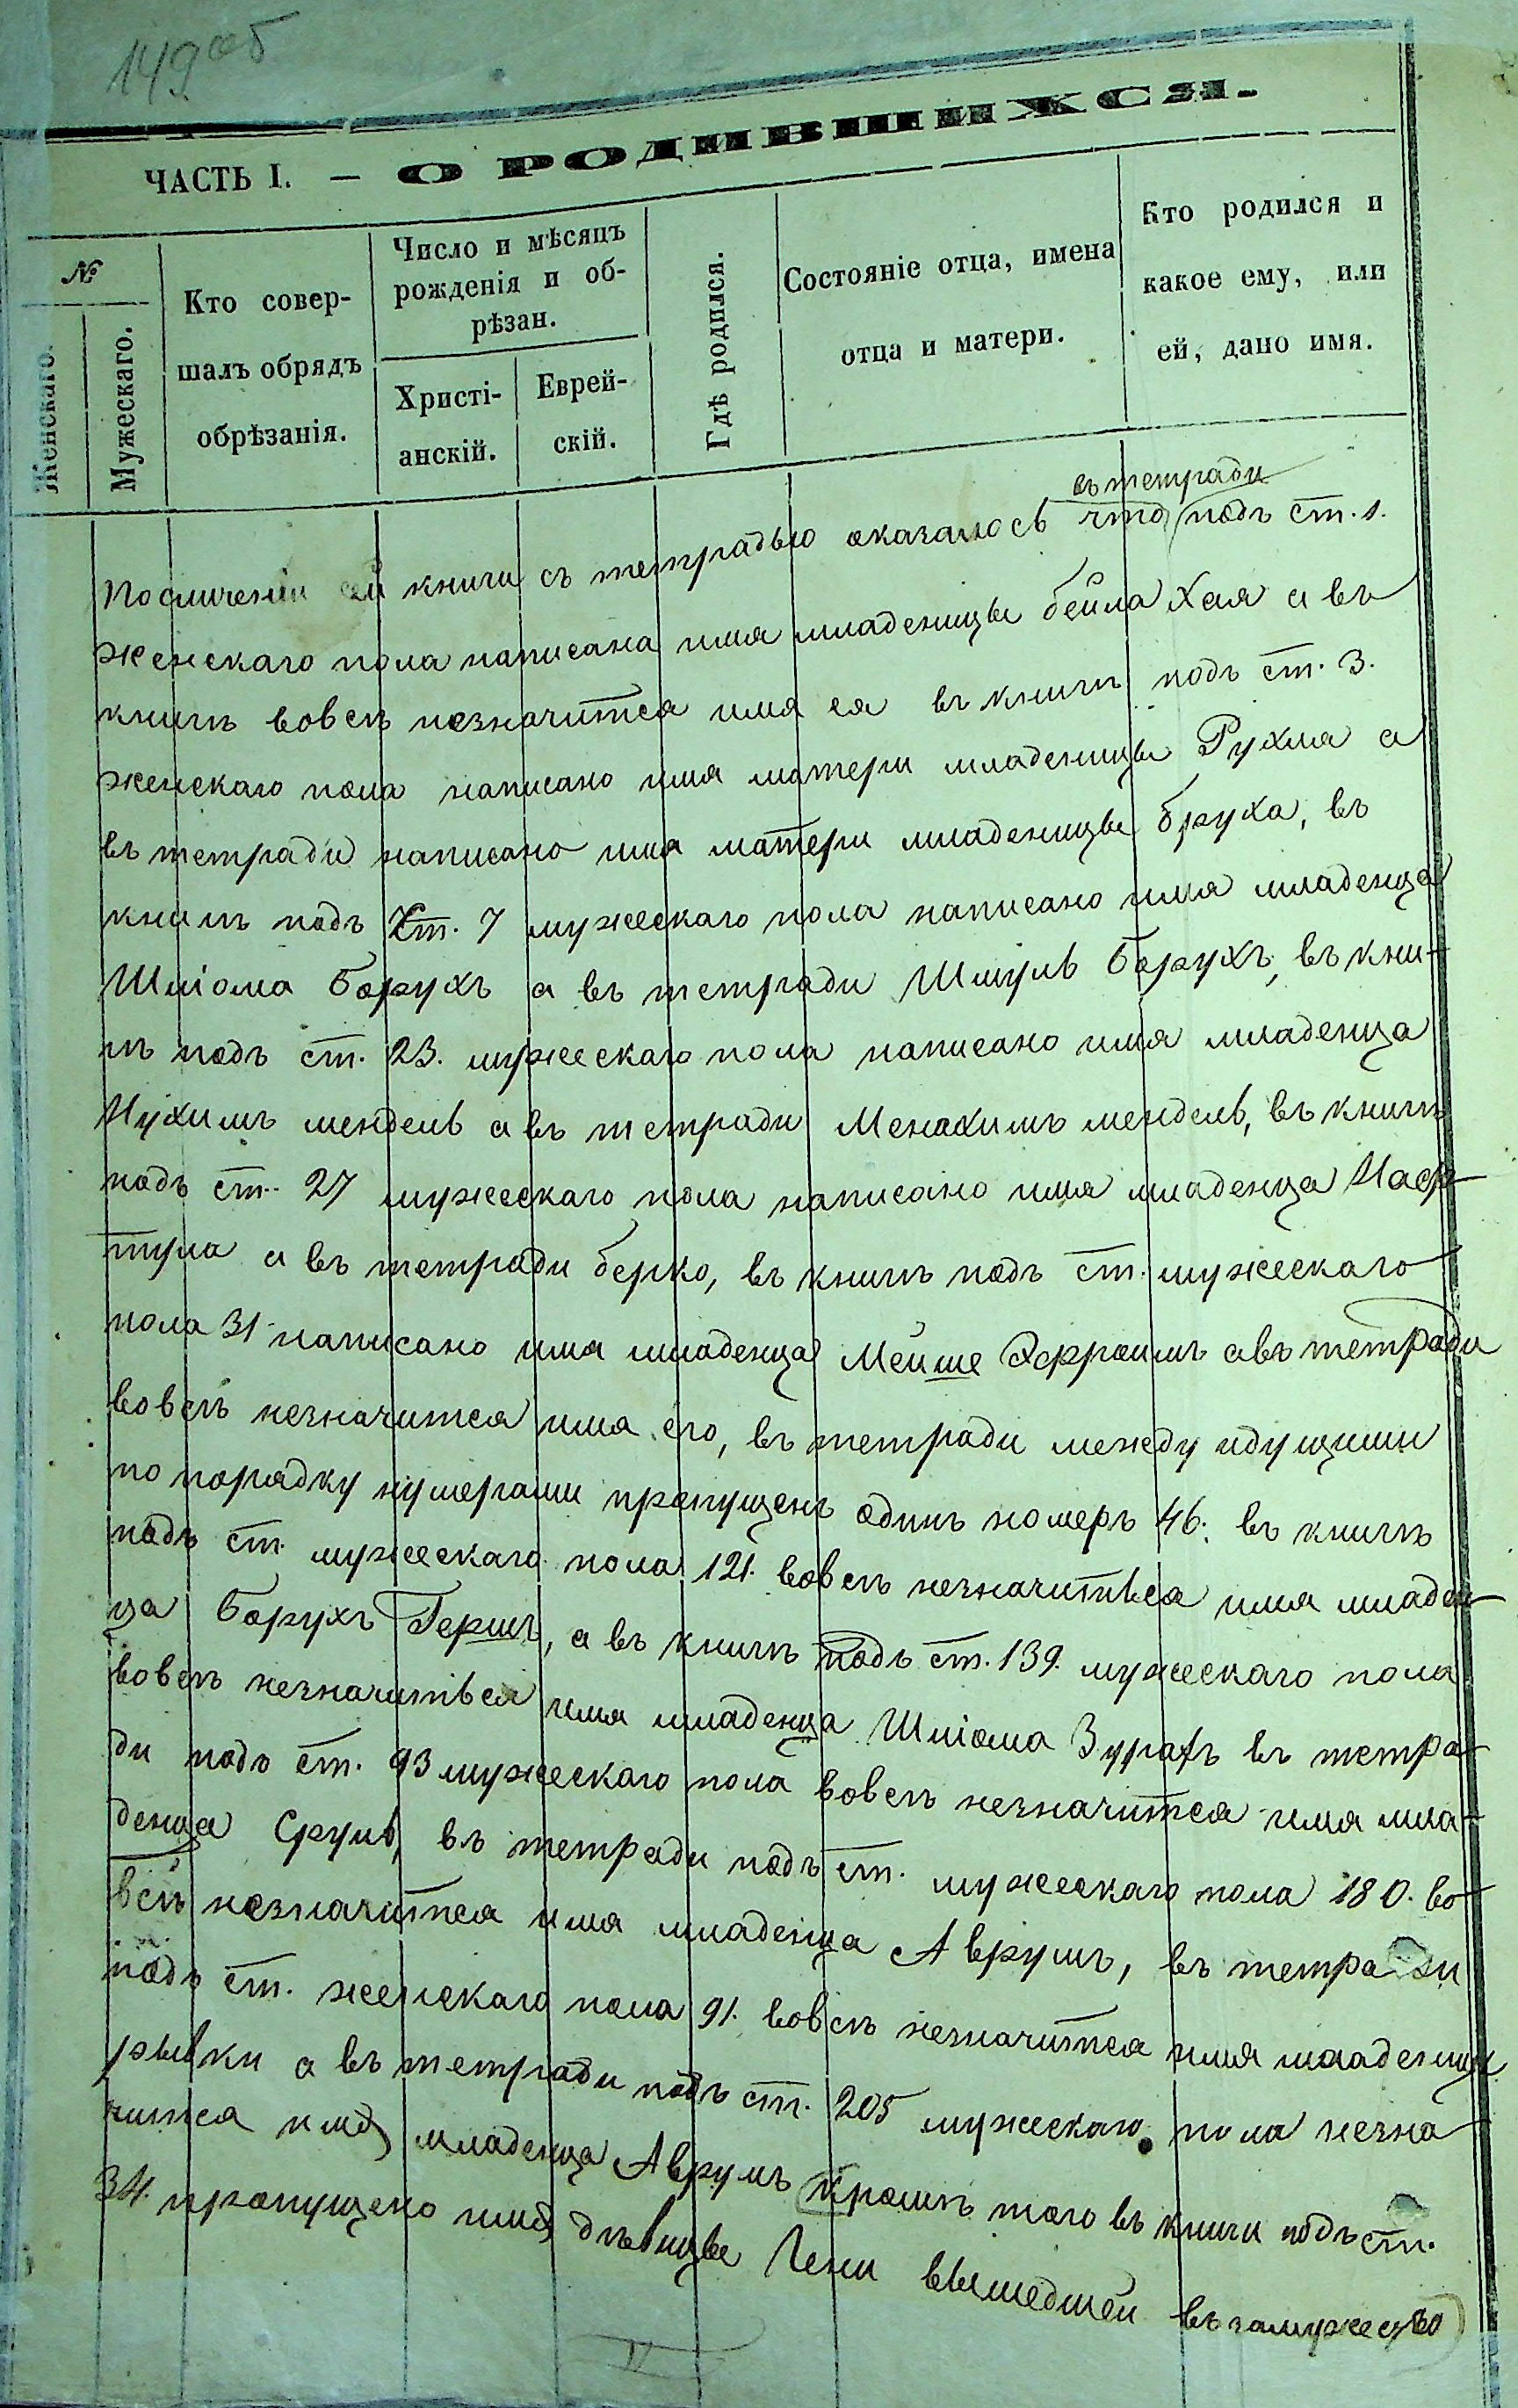 149 об
ЧАСТЬ I. — О РОДИВШИХСЯ.
№
Женскаго.
Мужескаго.
Кто совер-
шалъ обрядъ
обрѣзанія.
Число и мѣсяцъ
рожденія и об-
рѣзан.
Христі-
анскій.
Еврей-
скій.
Гдѣ родился.
Состояніе отца, имена
отца и матери.
Кто родился и
какое ему, или
ей, дано имя.
въ тетради
По сличеніи сей книги съ тетрадью оказалось что подъ ст. 1.
женскаго пола написана имя младеницы бейла Хая а въ
книгѣ вовсѣ незначится имя ея въ книгѣ подъ ст. 3.
женскаго пола написано имя матери младеницы Рухля а
въ тетради написано имя матери младеницы бруха, въ
книгѣ подъ ст. 7 мужескаго пола написано имя младенца
Шліома Борухъ а въ тетради Шмуль Борухъ, въ кни-
гѣ подъ ст. 23. мужескаго пола написано имя младенца
Нухимъ мендель а въ тетради Менахимъ мендель, въ книгѣ
подъ ст. 27 мужескаго пола написано имя младенца Наф-
тула а въ тетради берко, въ книгѣ подъ ст. мужескаго
пола 31 написано имя младенца Мейше Эфроимъ а въ тетради
вовсѣ незначится имя его, въ тетради между идущими
по порядку нумерами пропущенъ одинъ номеръ 46. въ книгѣ
подъ ст. мужескаго пола 121. вовсѣ незначиться имя младен-
ца Борухъ Гершъ, а въ книгѣ подъ ст. 139. мужескаго пола
вовсѣ незначиться имя младенца Шліома Зурахъ въ тетра-
ди подъ ст. 93 мужескаго пола вовсѣ незначится имя мла-
денца Сруль, въ тетради подъ ст. мужескаго пола 180. во-
всѣ незначится имя младенца Аврумъ, въ тетради
подъ ст. женскаго пола 91. вовсѣ незначится имя младеницы
рывки а въ тетради подъ ст. 205 мужескаго пола незна-
чится имя младенца Аврумъ Кромѣ того въ книги подъ ст.
34. пропущено имя дѣвицы Гени вышедшей въ замужество